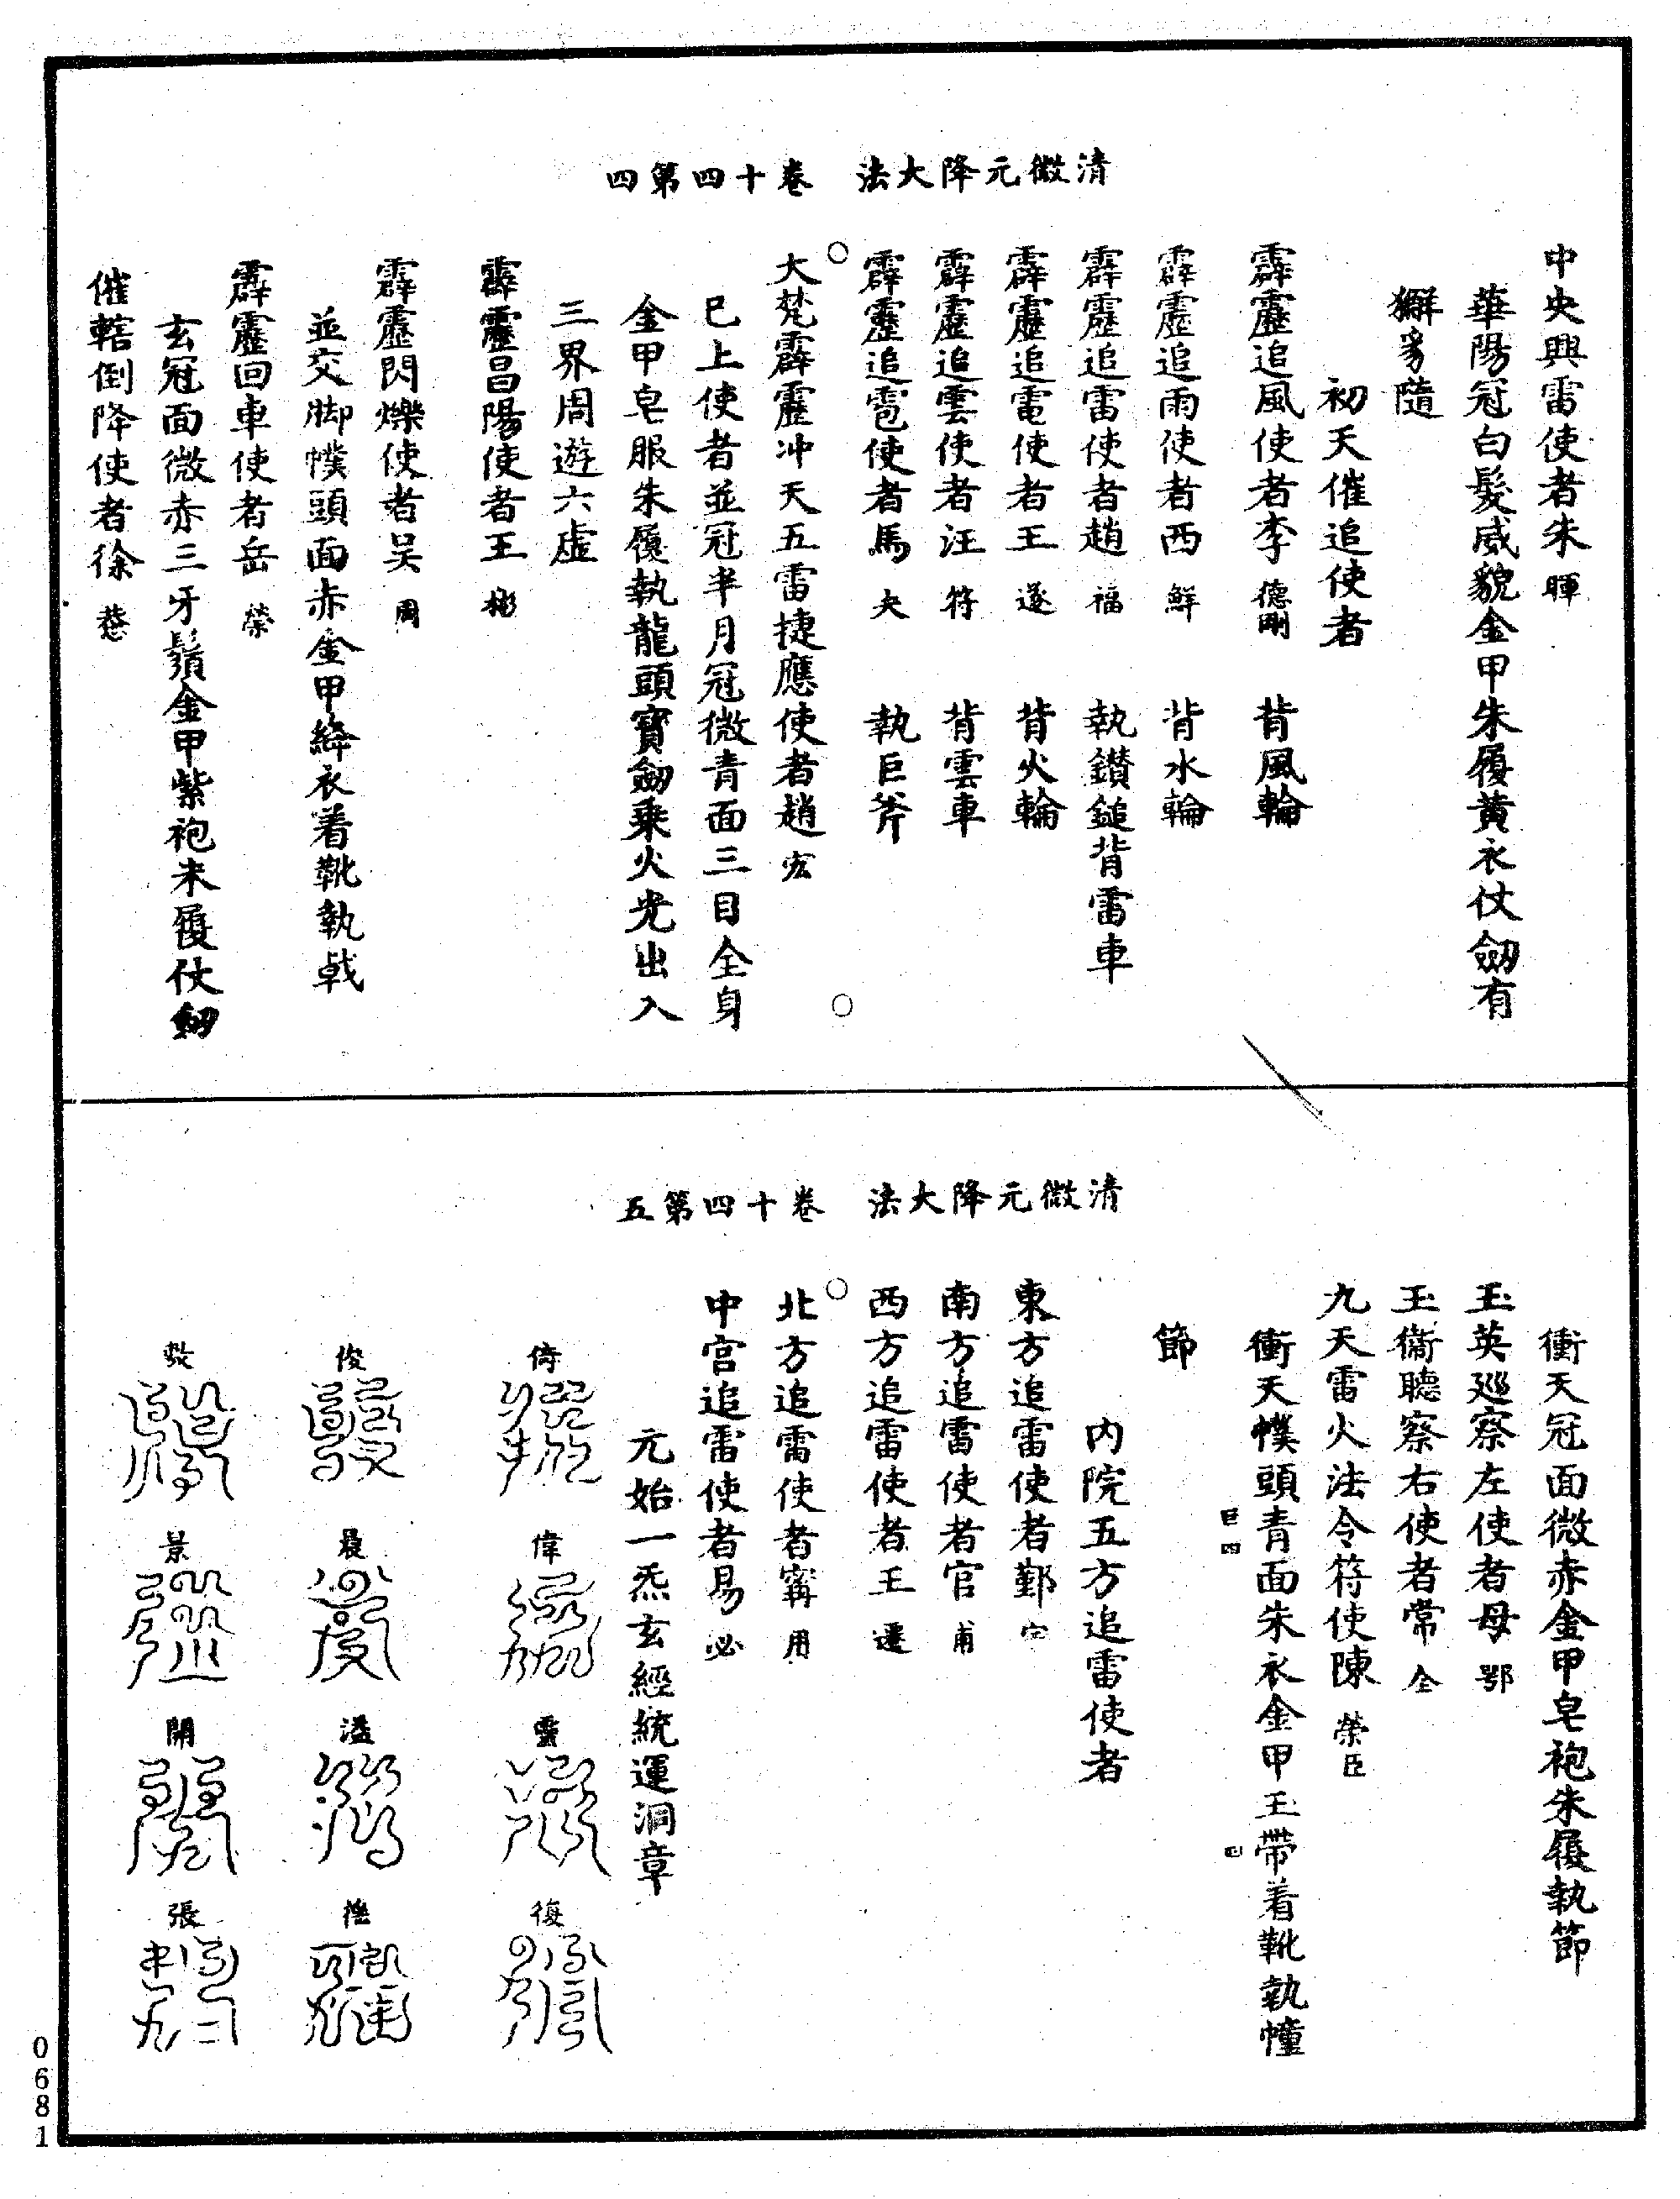 清微元降大法　卷十四第四
中央興雷使者朱暉
華陽冠白髮威貌金甲朱履黃衣仗劒有
獬豸隨
初天催追使者
霹靂追風使者李德剛　背風輪
霹靂追雨使者西鮮　背水輪
霹靂追雷使者趙福　執鑚鎚背雷車
霹靂追電使者王遂　背火輪
霹靂追雲使者汪符　背雲車
霹靂追雹使者馬夬　執巨斧
大梵霹靂冲天五雷捷應使者趙宏
已上使者並冠半月冠微青面三目全身
金甲皂服朱履執龍頭寶劒乗火光出入
三界周遊六虛
霹靂昌陽使者王彬
霹靂閃爍使者吳周
並交脚幞頭面赤金甲絳衣着靴執戟
霹靂回車使者岳榮
玄冠面微赤三牙鬚金甲紫袍朱履仗劒
催轄倒降使者徐㳟
清微元降大法　卷十四第五
衝天冠面微赤金甲皂袍朱履執節
玉英廵察左使者毋鄂
玉衞聽察右使者常全
九天雷火法令符使陳榮臣
衝天幞頭青面朱衣金甲玉帶着靴執幢
節
内院五方追雷使者
東方追雷使者鄞
南方追雷使者官甫
西方追雷使者王遷
北方追雷使者甯用
中宫追雷使者易必
元始一炁玄經統運洞章
偉
靈
復
俊
晨
溢
景
開
張
0681